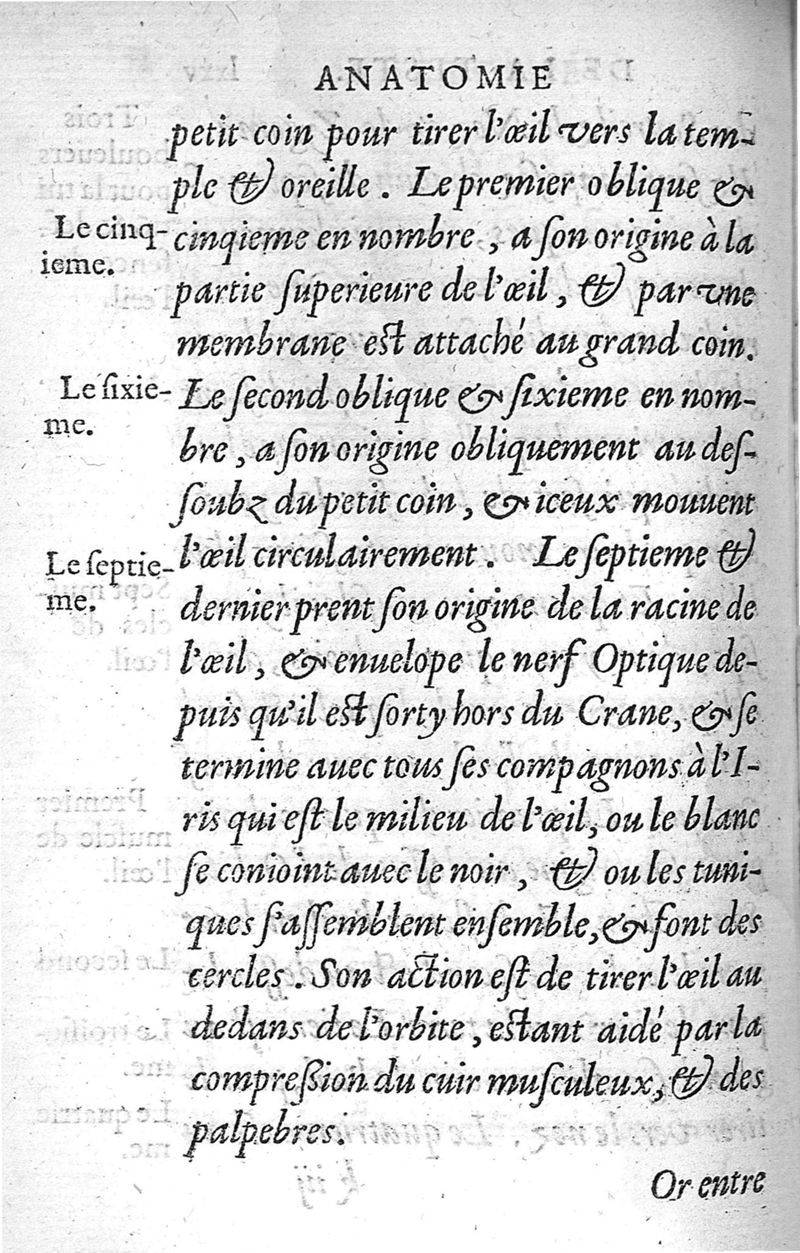 ANATOMIE
petit coin pour tirer l'œil vers la tem-
ple & oreille. Le premier oblique &
Le cinq-
ieme.
cinqieme en nombre, a ſon origine à la
partie ſuperieure de l'œil, & par vne
membrane eſt attaché au grand coin.
Le ſixie-
me.
Le ſecond oblique & ſixieme en nom-
bre, a ſon origine obliquement au deſ-
ſoubz du petit coin, & iceux mouuent
Le ſeptie-
me.
l'œil circulairement. Le ſeptieme &
dernier prent ſon origine de la racine de
l'œil, & enuelope le nerf Optique de-
puis qu'il eſt ſorty hors du Crane, & ſe
termine auec tous ſes compagnons à l'I-
ris qui eſt le milieu de l'œil, ou le blanc
ſe conioint auec le noir, & ou les tuni-
ques ſ'aſſemblent enſemble, & font des
cercles. Son action eſt de tirer l'œil au
dedans de l'orbite, eſtant aidé par la
compreſſion du cuir muſculeux, & des
palpebres.
Or entre